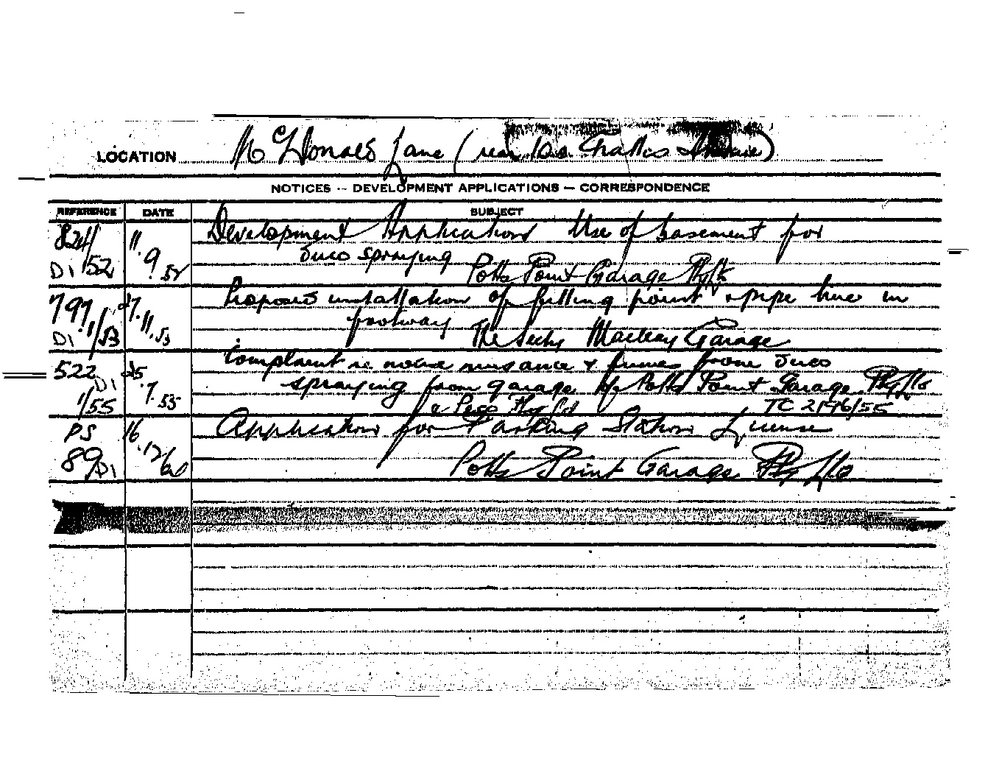 LOCATION McDonald Lane (rear Challis Avenue)
NOTICES -- DEVELOPMENT APPLICATIONS — CORRESPONDENCE
REFERENCE DATE SUBJECT
824/ D1/52 11.9.52 Development Application Use of basement for
Duco spraying Potts Point Garage Pty Ltd
797 D1 1/53 27.11.53 Proposed installation of filling point & pipe line in
footway The Secty Macleay Garage
522 D1 1/55 25.7.55 Complaint re noise nuisance & fumes from Duco
spraying from garage by Potts Point Garage Pty Ltd
Pty Ltd TC 2146/55
PS 89/D1 16.12/60 Application for Parking Station License
Potts Point Garage Pty Ltd